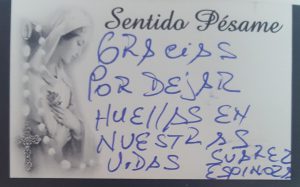 Sentido Pésame
GRACIAS
POR DEJAR
HUELLAS EN
NUESTRAS
VIDAS SUAREZ
ESPINOZA